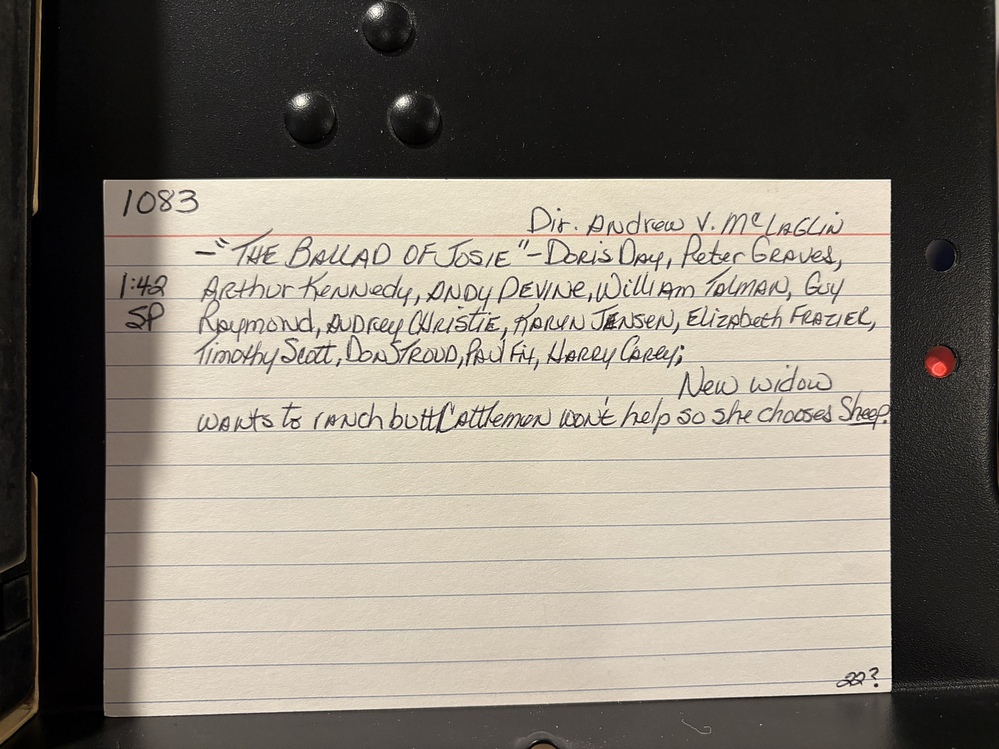 1083
Dir. Andrew V. McLaglin
-"The Ballad of Josie"-Doris Day, Peter Graves,
1:42 Arthur Kennedy, Andy Devine, William Talman, Guy
SP Raymond, Audrey Christie, Karen Jensen, Elizabeth Frazier,
Timothy Scott, Don Stroud, Paul Fix, Harry Carey;
New widow
wants to ranch but Cattlemen won't help so she chooses Sheep.
22?